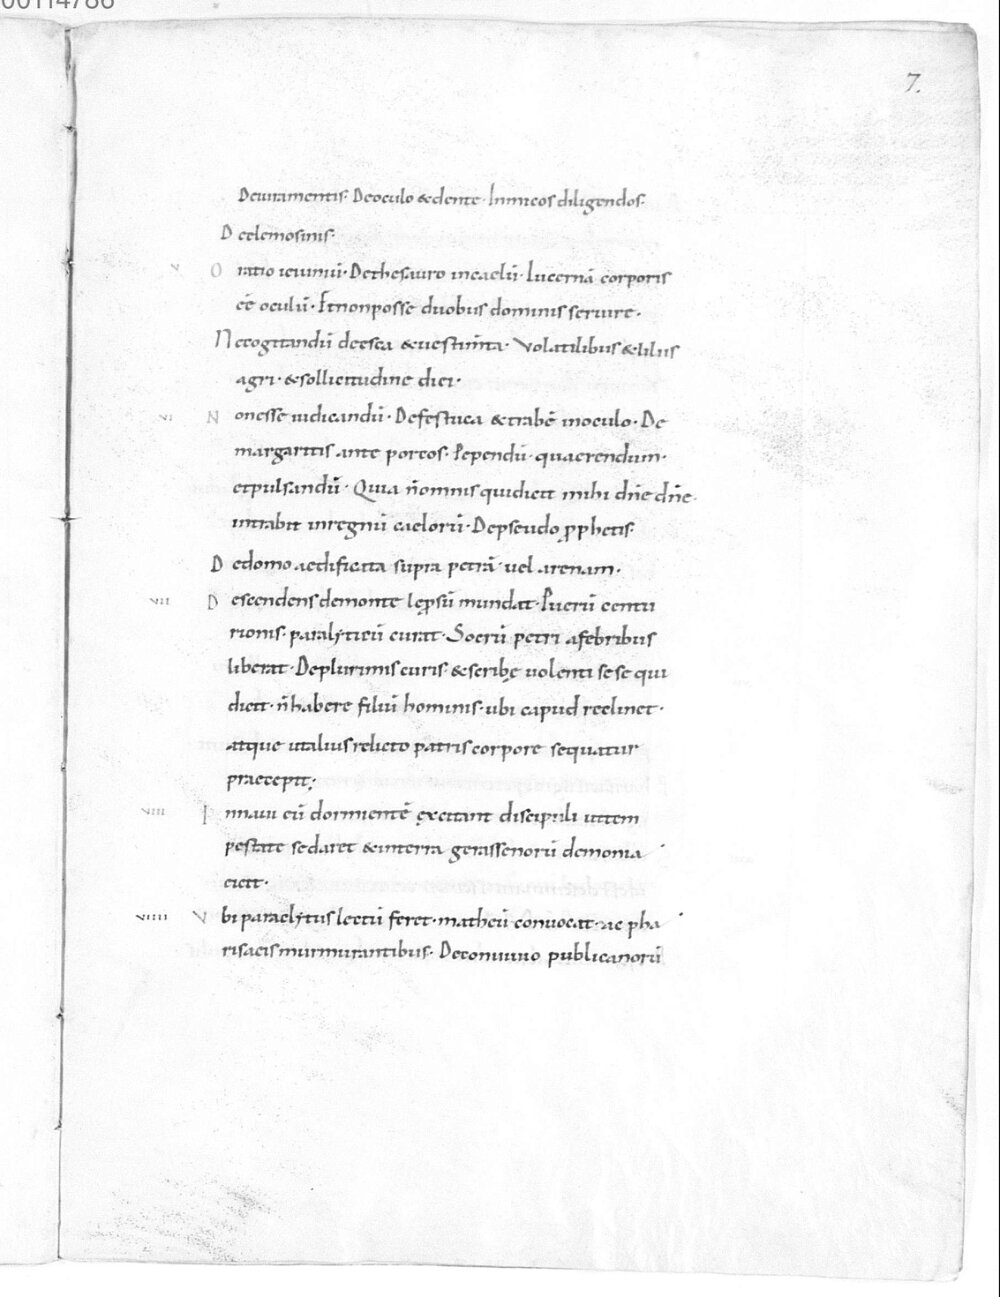 00114786
7.
Deiuramentis· Deoculo &dente· Inimicos diligendos·
Deelemosinis·
v Oratio ieiuniū· Dethesauro incaelū· Lucernā corporis
eē oculū· Etnonposse duobus dominis seruire·
Necogitandū deesca &uestim̄ta· Volatilibus &lilus
agri· &sollicitudine diei·
vi Nonesse iudicandū· Defestuca &trabē inoculo· De
margaritis ante porcos· Pependū· quaerendum·
etpulsandū· Quia n̄omnis quidicit mihi dn̄e dn̄e·
intrabit inregnū caelorū· Depseudo ꝓphetis·
Dedomo aedificata supra petrā uel arenam·
vii Descendens demonte lep̱sū mundat· Puerū centu
rionis· paralyticū curat· Socrū petri afebribus
liberat· Deplurimis curis· &scribę uolenti se se qui
dicit· n̄habere filiū hominis· ubi capud reclinet·
atque utalius relicto patris corpore sequatur
praecepit;
viii Innaui eū dormientē ęxcitant discipuli uttem
pestate sedaret &interra gerassenorū demonia
eicit·
viiii Vbi paraclytus lectū feret· matheū conuocat· ac pha
risaeis murmurantibus· Deconuiuio publicanorū